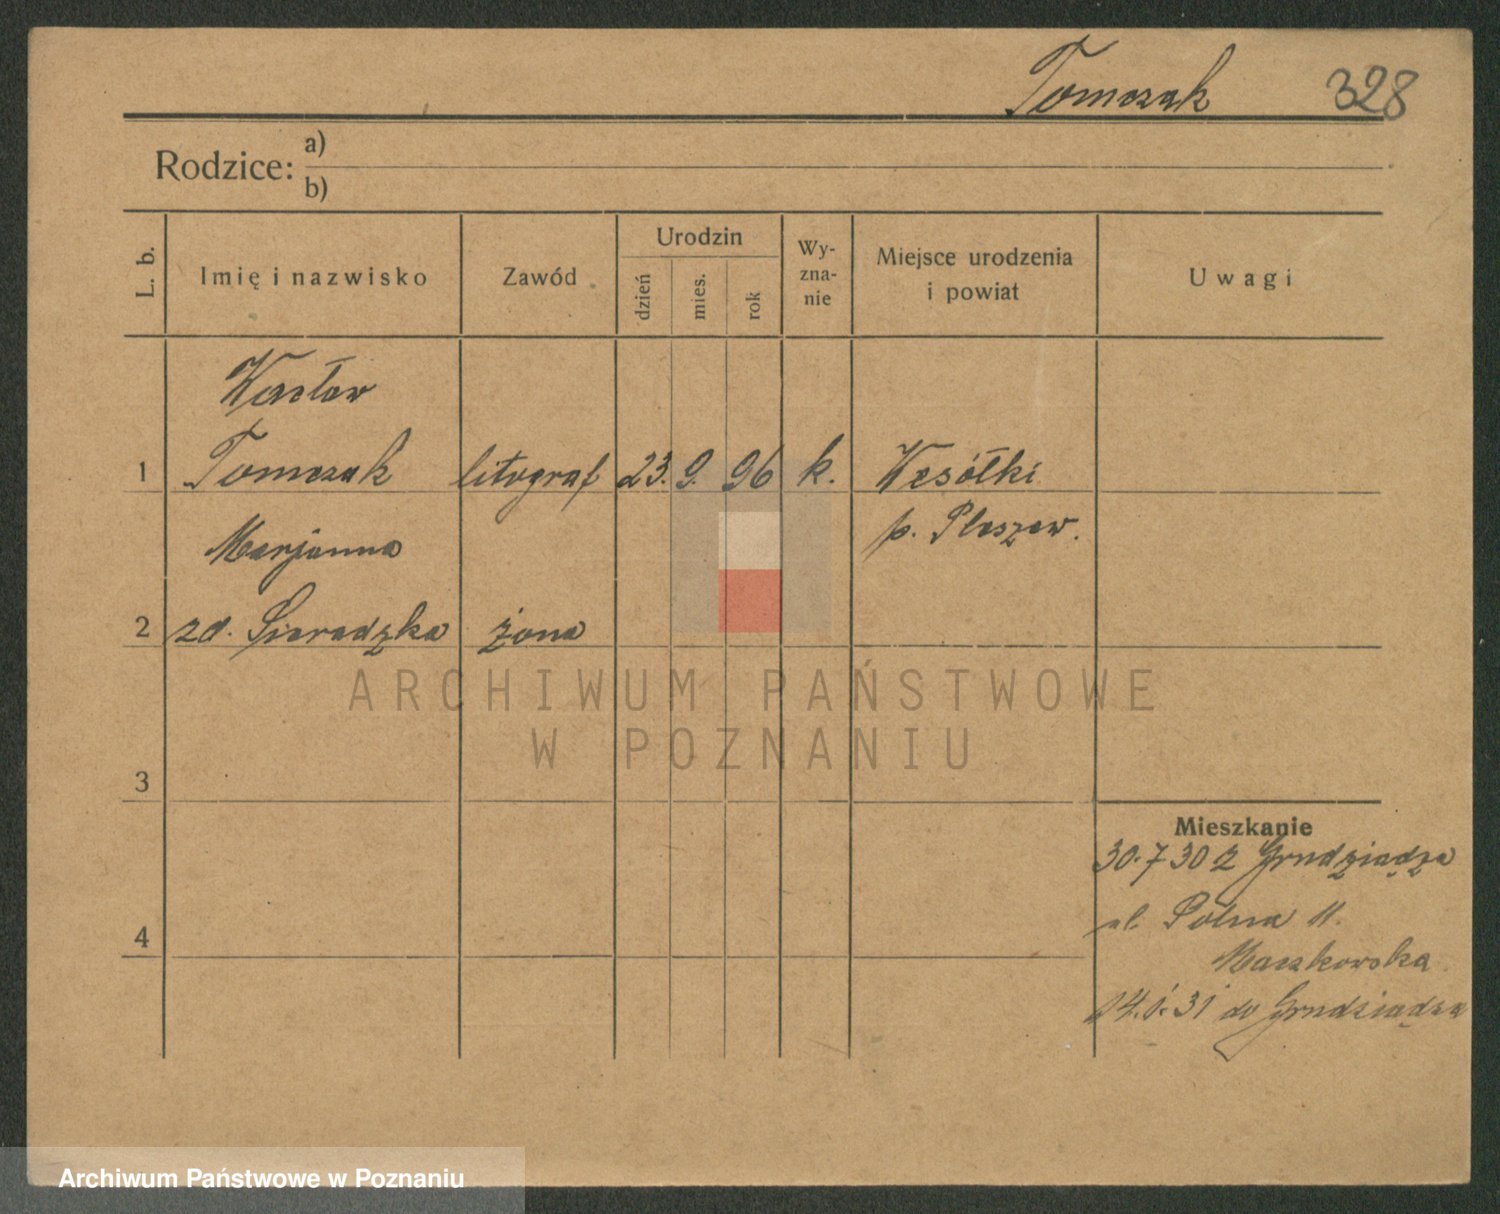 Tomczak 328
Rodzice: a)
b)
L. b. Imię i nazwisko Zawód Urodzin dzień mies. rok Wy-zna-nie Miejsce urodzenia i powiat Uwagi
Wacław
1 Tomczak litograf 23. 9. 96 k. Wesółki
p. Pleszew.
Marjanna
2 zd. Sieradzka żona
ARCHIWUM PAŃSTWOWE
W POZNANIU
3
Mieszkanie
30.7 30 z Grudziądza
ul. Polna 11.
4
Maczkowska
14.1.31 do Grudziądza
Archiwum Państwowe w Poznaniu